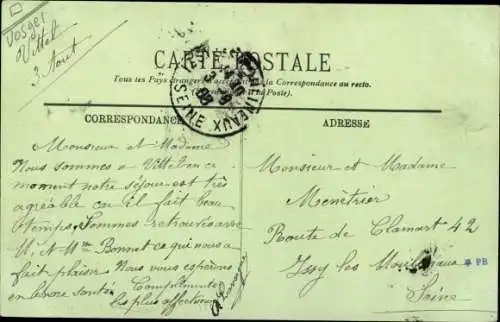 Vosges
Vittel
3 Août
CARTE POSTALE
Tous les Pays étrangers la Correspondance au recto.
la Poste).
CORRESPONDANCE
ADRESSE
Monsieur et Madame
Nous sommes a Vittel en ce
moment notre séjour est très
agréable car il fait beau
temps, Sommes retrouvés avec
M. & Mme Bonnet ce qui nous a
fait plaisir Nous vous espérons
en bonne santé. Compliments
les plus affectueux
MOULINEAUX
SEINE
Monsieur et Madame
Menétrier
Route de Clamart 42
Issy les Moulineaux
Seine
PB